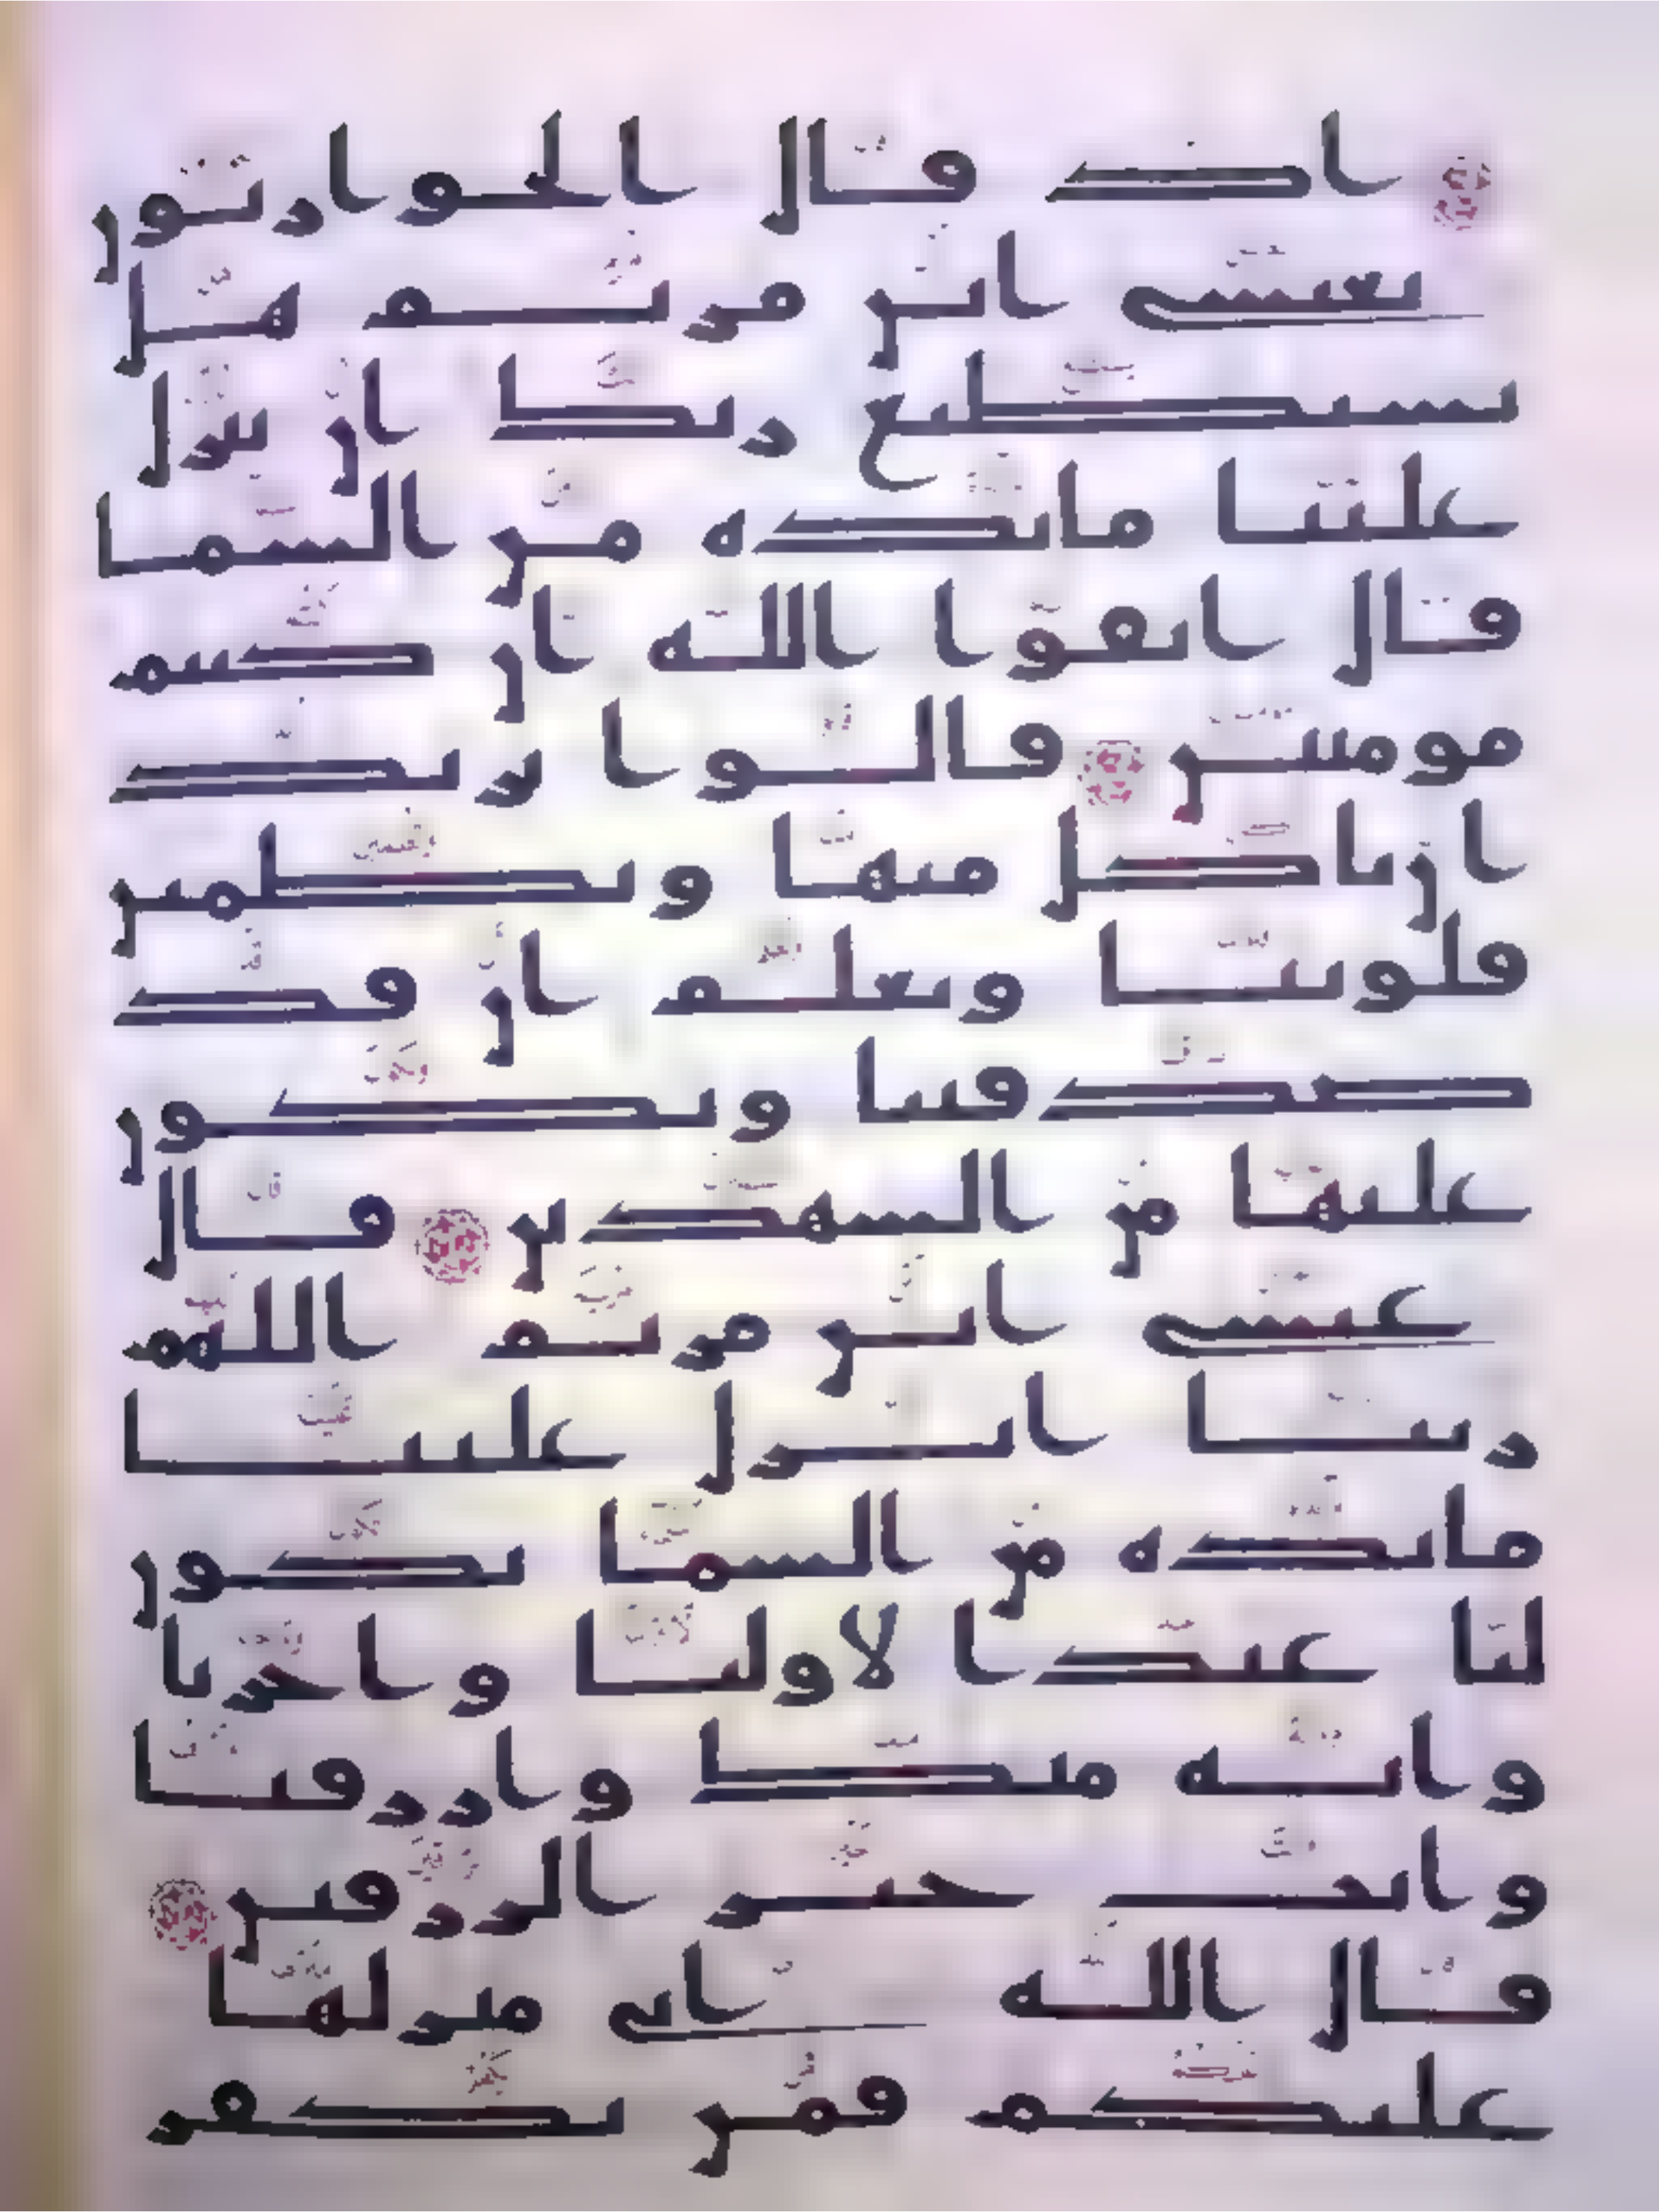 اذ قال الحواريون
يعيسى ابن مريم هل
يستطيع ربك ان ينزل
علينا مائدة من السما
قال اتقوا الله ان كنتم
مومنين قالوا نريد
ان ناكل منها وتطمئن
قلوبنا ونعلم ان قد
صدقتنا ونكون
عليها من الشهدين قال
عيسى ابن مريم اللهم
ربنا انزل علينا
مائدة من السما تكون
لنا عيدا لاولنا واخرنا
واية منك وارزقنا
وانت خير الرزقين
قال الله اني منزلها
عليكم فمن يكفر